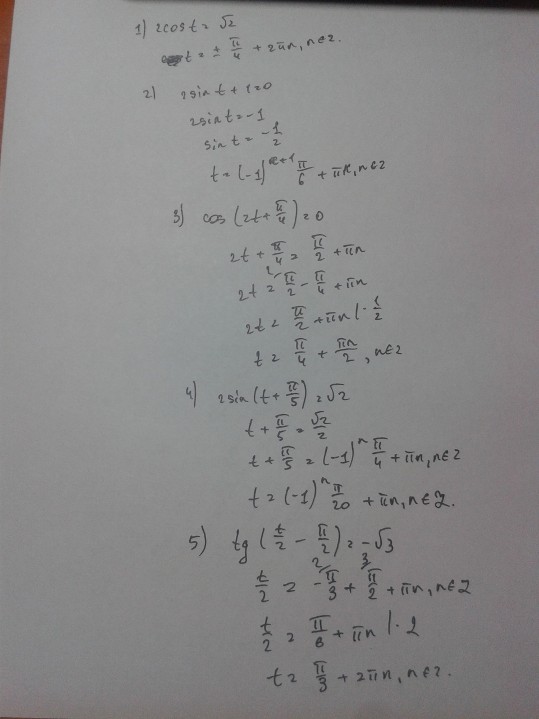 1) 2cost = √2
t = ± π/4 + 2πn, n∈z.
2) 2sin t + 1 = 0
2sin t = -1
sin t = -1/2
t = (-1)^(k+1) π/6 + πk, n∈z
3) cos (2t + π/4) = 0
2t + π/4 = π/2 + πn
2t = 2/ π/2 - π/4 + πn
2t = π/2 + πn | · 1/2
t = π/4 + πn/2, n∈z
4) 2sin (t + π/5) = √2
t + π/5 = √2/2
t + π/5 = (-1)^n π/4 + πn, n∈z
t = (-1)^n π/20 + πn, n∈Z.
5) tg (t/2 - π/2) = -√3
t/2 = 2/ -π/3 + 3/ π/2 + πn, n∈Z
t/2 = π/6 + πn | · 2
t = π/3 + 2πn, n∈z.